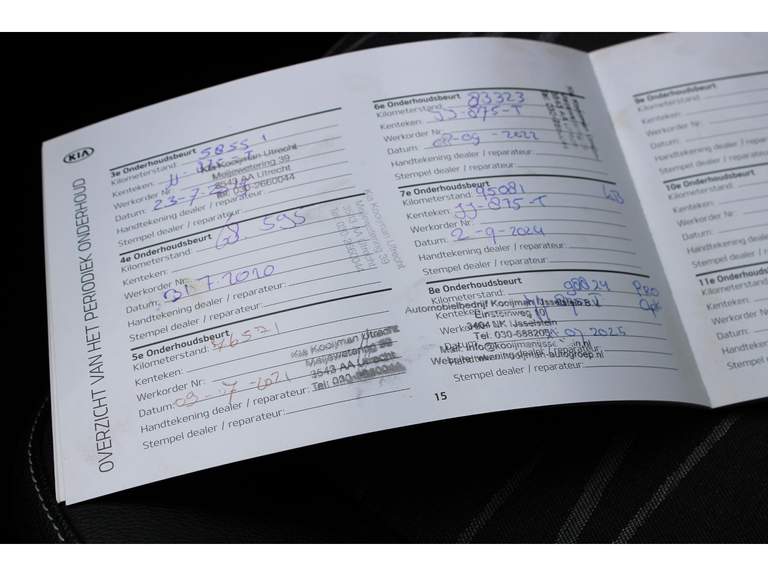 KIA
OVERZICHT VAN HET PERIODIEK ONDERHOUD
3e Onderhoudsbeurt
Kilometerstand: 58551
Kenteken:
Werkorder Nr.:
Datum: 23-7-
Handtekening dealer / reparateur:
Stempel dealer / reparateur:
Kia Kooijman Utrecht
Meijewetering 39
3543 AA Utrecht
Tel: 030-2660044
4e Onderhoudsbeurt
Kilometerstand: 68.595
Kenteken:
Werkorder Nr.:
Datum: 31.7.2020
Handtekening dealer / reparateur:
Stempel dealer / reparateur:
Kia Kooijman Utrecht
Meijewetering 39
3543 AA Utrecht
5e Onderhoudsbeurt
Kilometerstand: 76521
Kenteken:
Werkorder Nr.:
Datum: 09-7-2021
Handtekening dealer / reparateur:
Stempel dealer / reparateur:
Kia Kooijman Utrecht
Meijewetering 39
3543 AA Utrecht
Tel: 030-2660044
6e Onderhoudsbeurt
Kilometerstand: 83323
Kenteken: JJ-875-T
Werkorder Nr.:
Datum: 08-09-2022
Handtekening dealer / reparateur:
Stempel dealer / reparateur:
7e Onderhoudsbeurt
Kilometerstand: 95081
Kenteken: JJ-875-T
Werkorder Nr.:
Datum: 2-9-2024
Handtekening dealer / reparateur:
Stempel dealer / reparateur:
8e Onderhoudsbeurt
Kilometerstand: 98824
Kenteken:
Werkorder
Datum: 07 2025
Handtekening dealer / reparateur:
Stempel dealer / reparateur:
Automobielbedrijf Kooijman IJsselstein B.V.
Einsteinweg 10
IJsselstein
Tel. 030-688205
15
9e Onderhoudsbeurt
Kilometerstand:
Kenteken:
Werkorder Nr.:
Datum:
Handtekening
Stempel dealer
10e Onderhoudsbeurt
Kilometerstand:
Kenteken:
Werkorder Nr
Datum:
Handtekening
Stempel dealer
11e Onderhoudsbeurt
Kilometerstand
Kenteken:
Werkorder
Datum:
Handtekening
Stempel